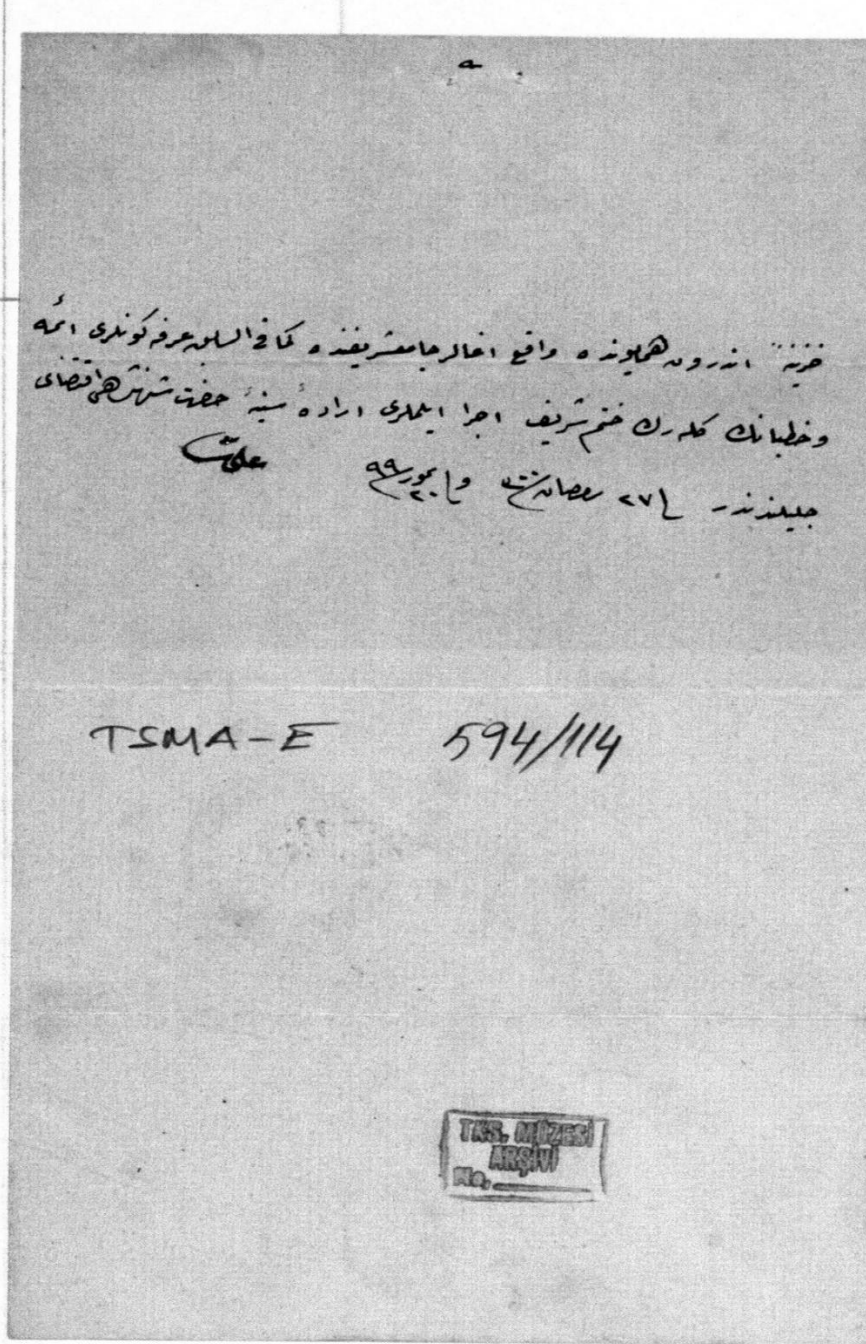 خزینهٔ اندرون همایونده واقع اغالر جامعشریفنده کما فی السابق عرفه کونلری ائمه
وخطبانك کله رك ختم شریف اجرا ایلملری ارادهٔ سنیهٔ حضرت شهنشاهی اقتضای
جلیلندندر فی ٢٧ رمضان سنه ٣٠٠ و فی ٢٠ تموز سنه ٩٩
TSMA-E 594/114
TKS. MÜZESİ
ARŞİVİ
No.